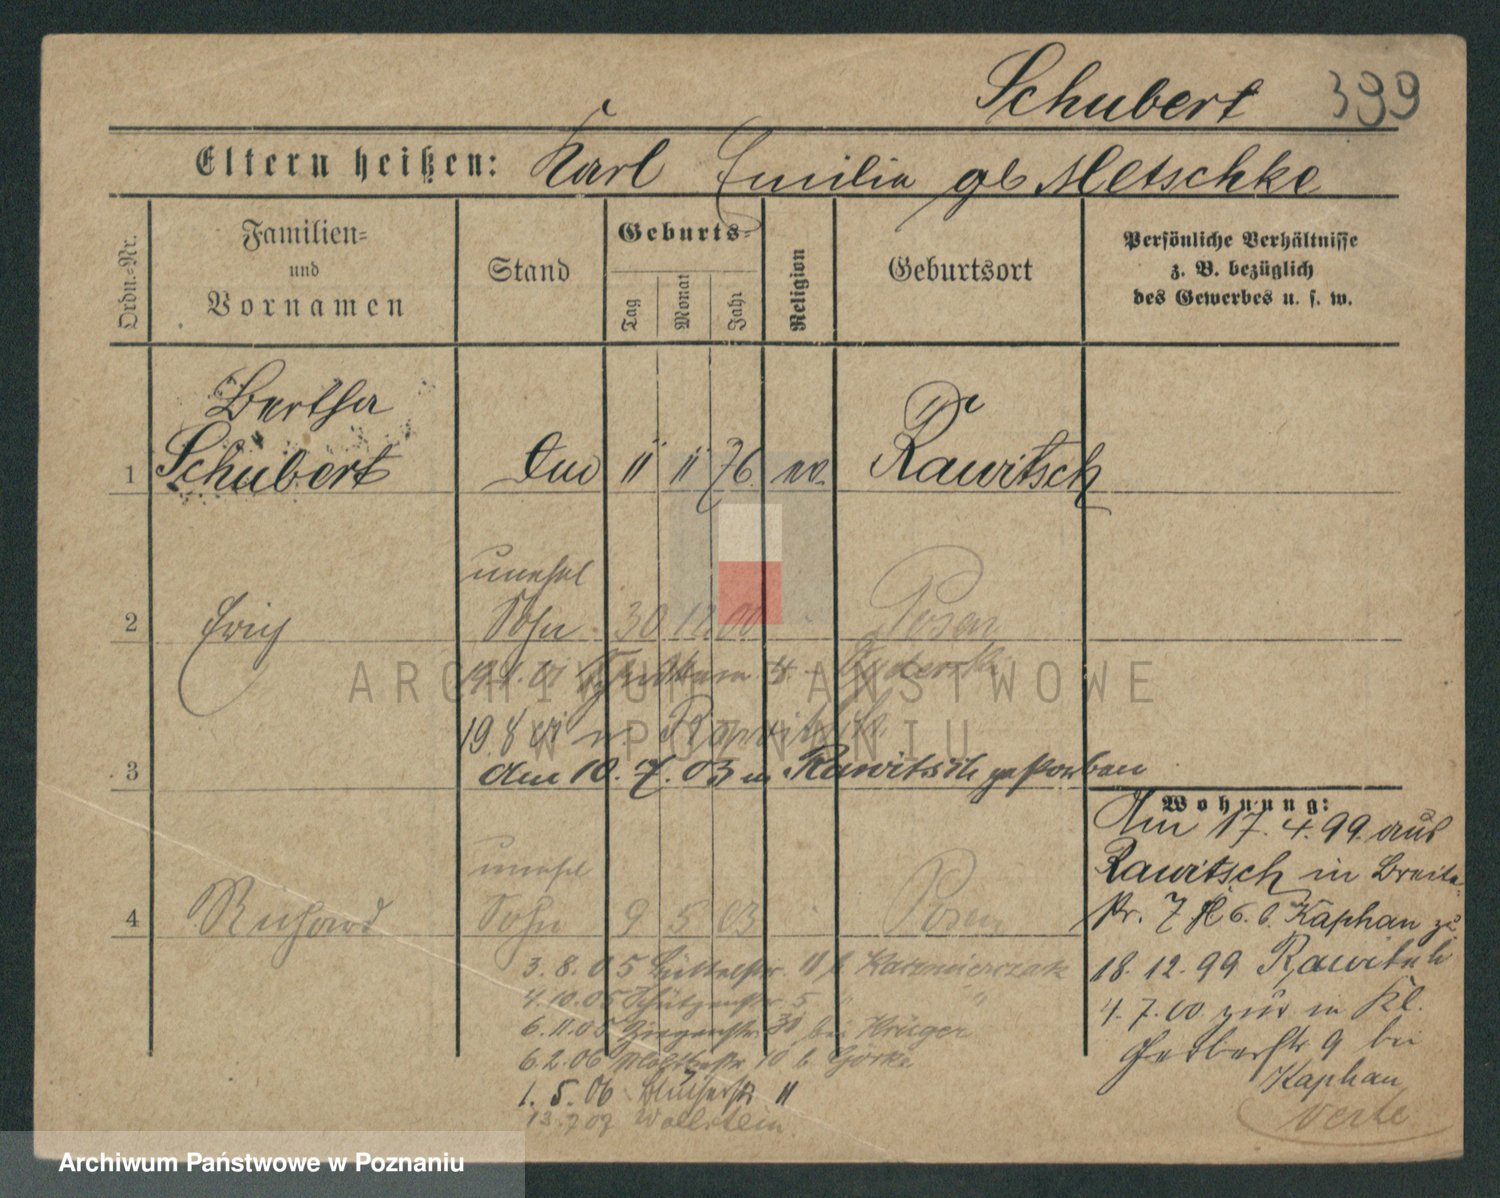 Schubert 399
Eltern heißen: Karl Emilia gb Metschke
Ordn.-Nr.
Familien-
und
Vornamen
Stand
Geburts-
Tag
Monat
Jahr
Religion
Geburtsort
Persönliche Verhältnisse
z. B. bezüglich
des Gewerbes u. s. w.
Bertha
1 Schubert 11 11 76 ev. Rawitsch
unehel
2 Erich Sohn 30 12 00 Posen
19.1.01 4
ARCHIWUM PAŃSTWOWE
19 8
W POZNANIU
3 am 10.7.03 in Rawitsch gestorben
Wohnung:
Am 17.4.99 aus
Rawitsch in Breite-
str. 7 b. Kaphan zu
18.12.99 Rawitsch
4.7.00 zur in Kl.
Gerberstr 9 bei
Kaphan
verte
unehel
4 Richard Sohn 9 5 03 Posen
3.8.05 11 b. Kazmierczak
4.10.05 Schützenstr 5 " "
6.11.05 30 bei Krüger
6.2.06 10 b. Görke
1.5.06 11
13.7.07 Wollstein
Archiwum Państwowe w Poznaniu